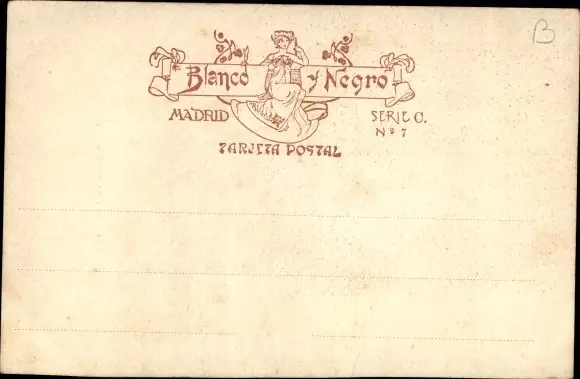 B
Blanco y Negro
MADRID
SERIE C.
Nº 7
TARJETA POSTAL